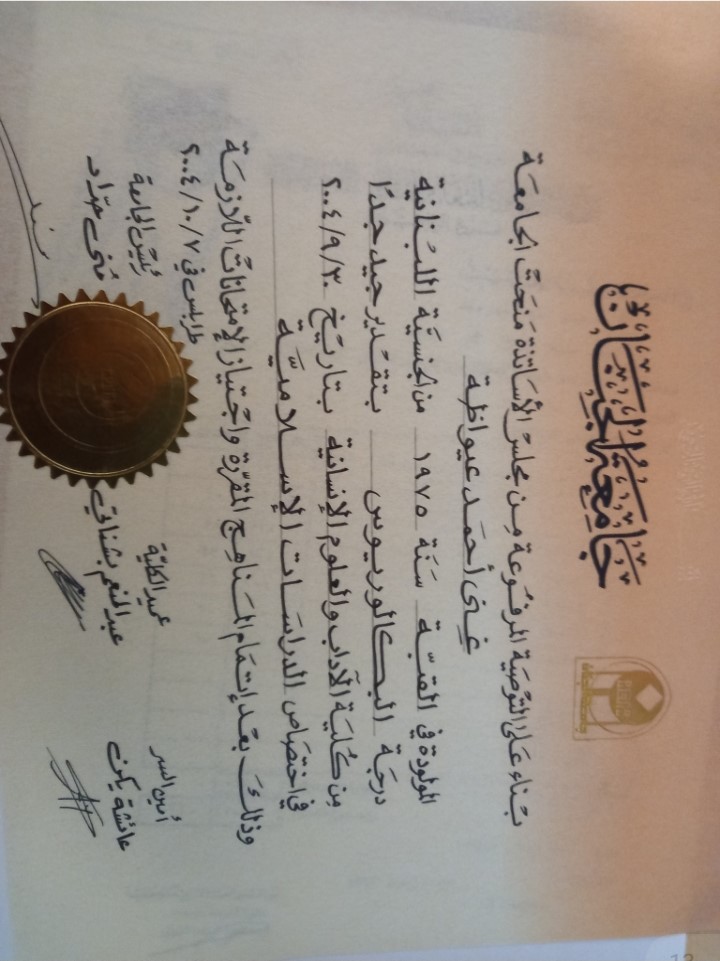 جامعة الجنان
بناء على التوصية المرفوعة من مجلس الأساتذة منحت الجامعة
غنى أحمد عيواظة
المولودة في القبة سنة ١٩٧٥ من الجنسية اللبنانية
درجة البكالوريوس بتقدير جيد جدًا
من كلية الآداب والعلوم الإنسانية بتاريخ ٢٠٠٤/٩/٣٠
في اختصاص الدراسات الإسلامية
وذلك بعد إتمام المناهج المقررة واجتياز الإمتحانات اللازمة
طرابلس في ٢٠٠٤/١٠/٧
أمين السر عميد الكلية رئيس الجامعة
عائشة يكن عبد المنعم بشناتي منى حداد
13